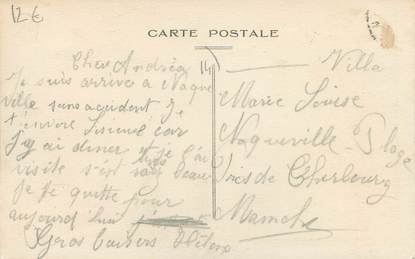 12 €
CARTE POSTALE
14
Chère Andréa
Je suis arrivé a Naque
ville sans accident je
t'envoie Lisieux car
j'y ai diner et je l'ai
visité s'est très beau
Je te quitte pour
aujourd'hui
Gros baisers
Villa
Marie Louise
Naqueville-Plage
près de Cherbourg
Manche